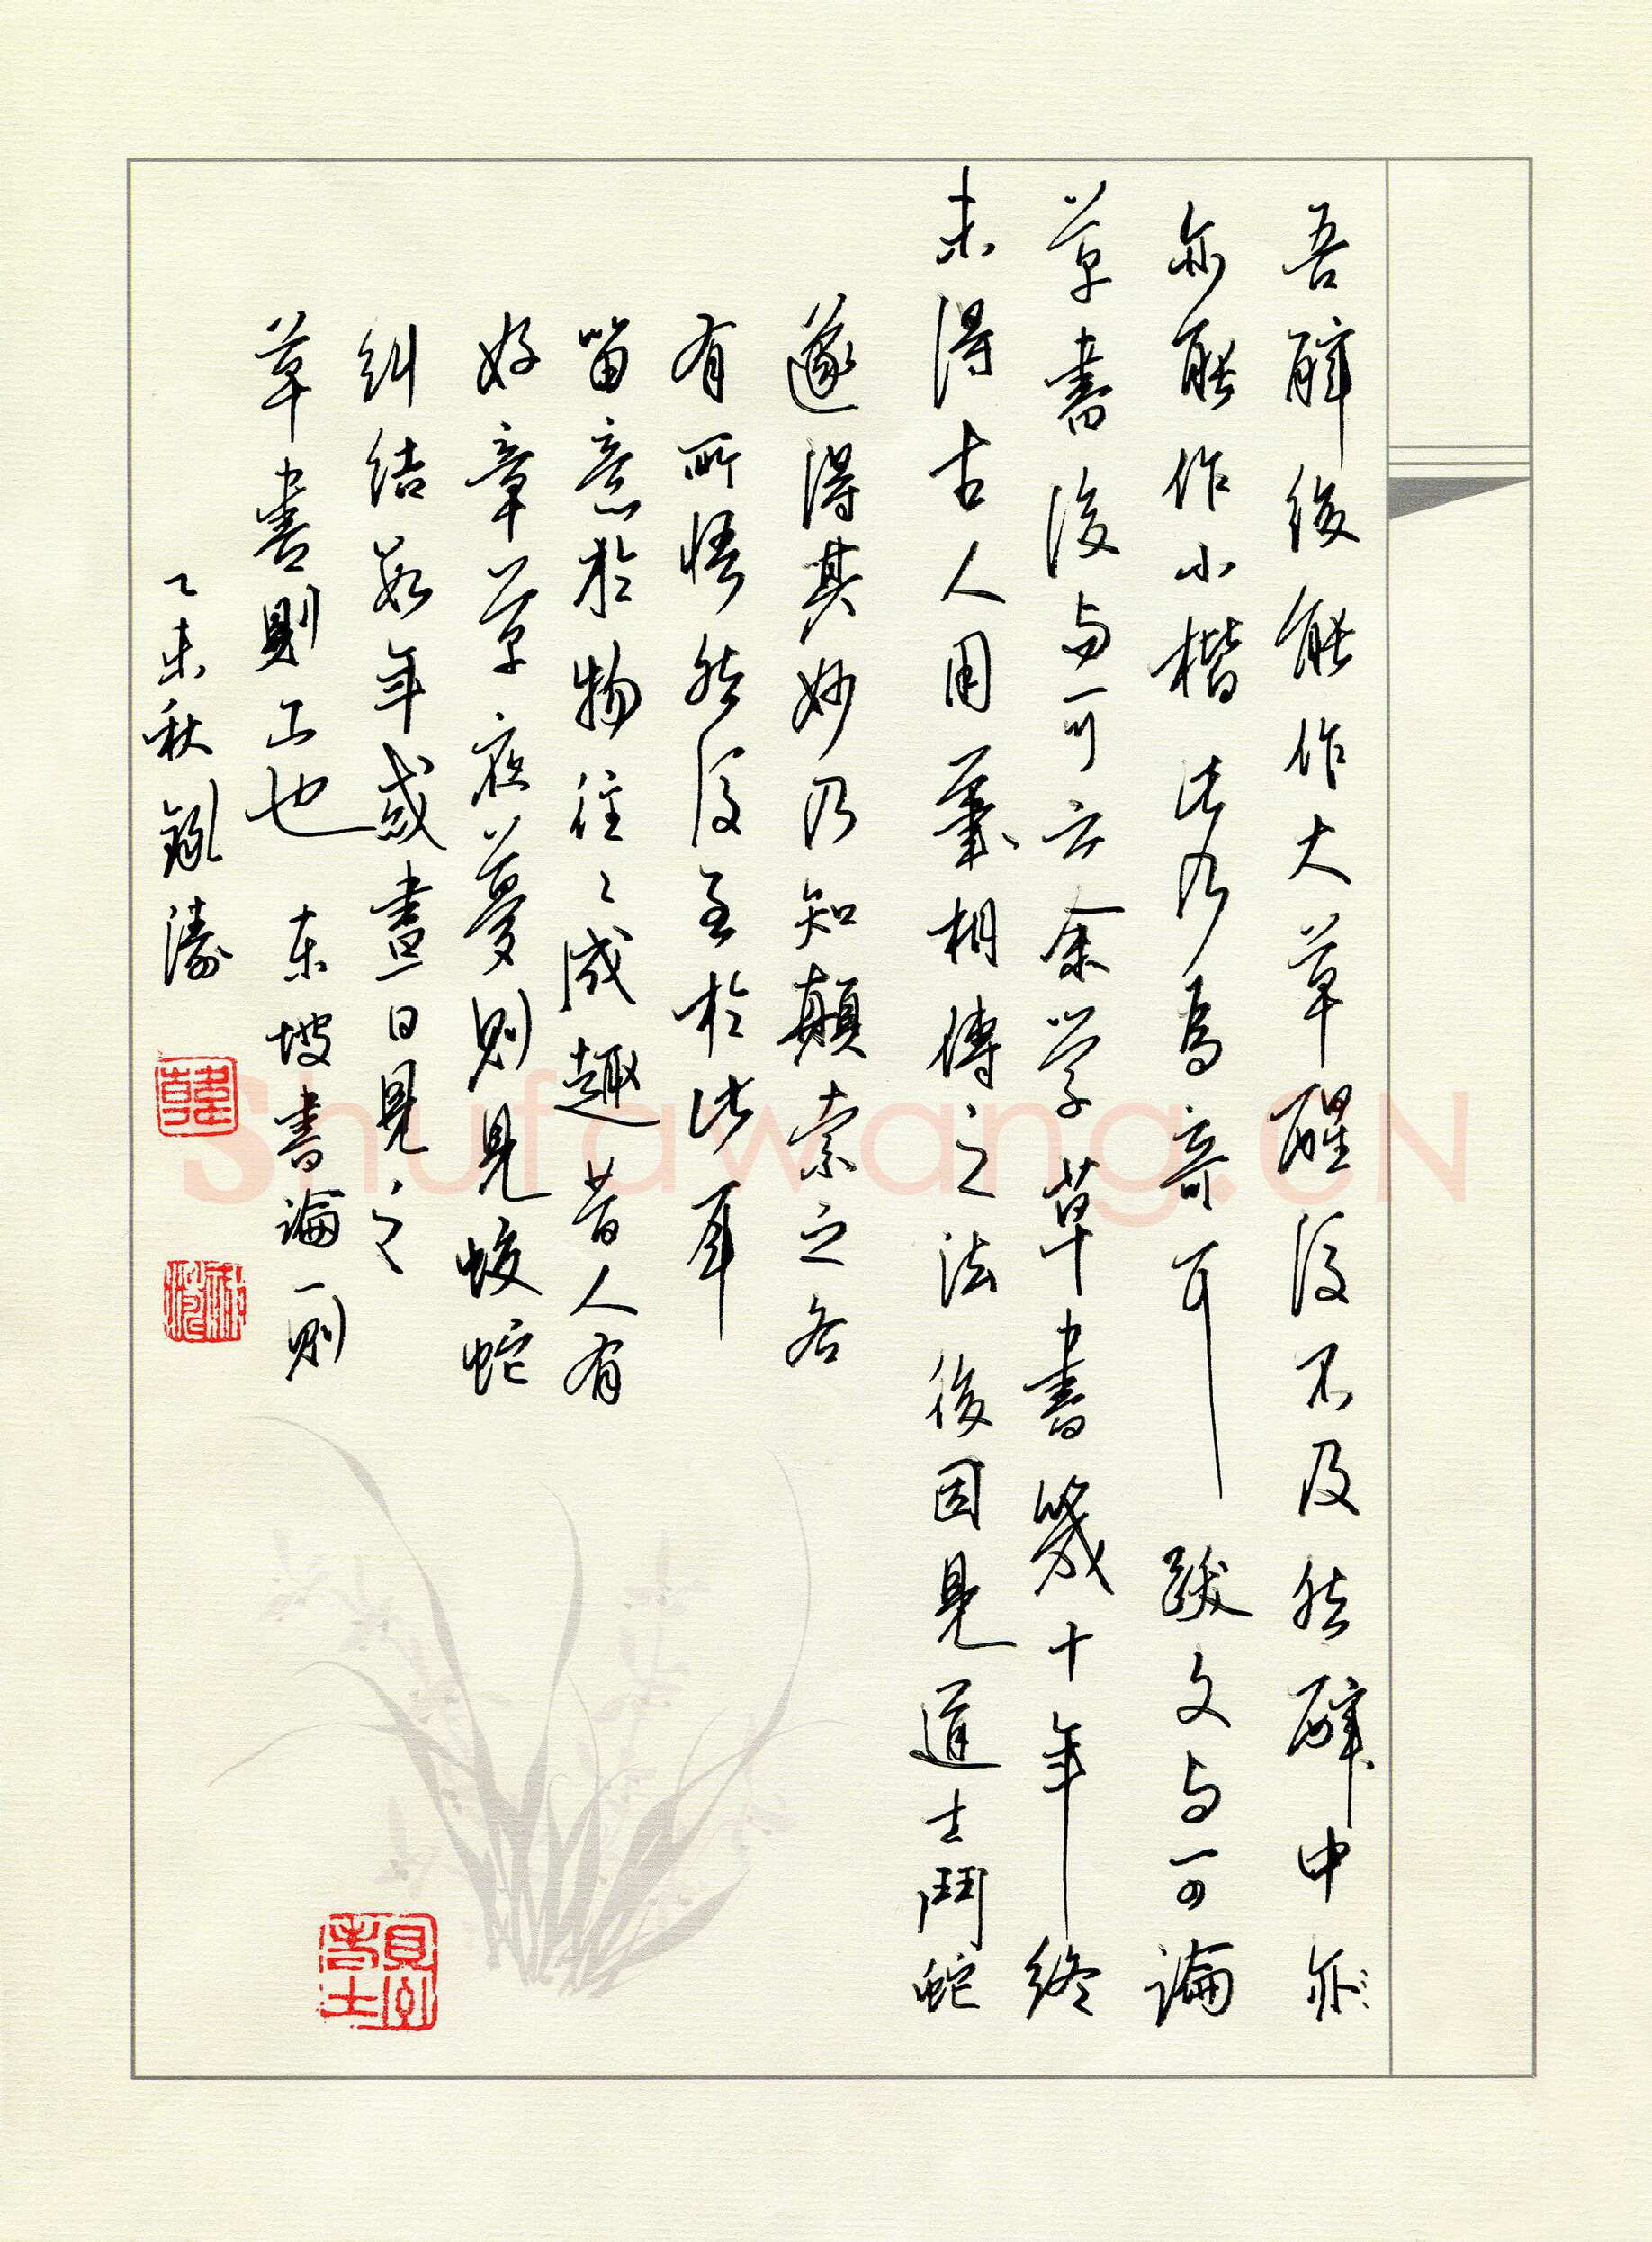 吾醉後能作大草醒後不及然醉中亦
亦能作小楷此乃為奇耳 跋文与可論
草書後与可云余学草書幾十年終
未得古人用筆相傳之法後因見道士鬥蛇
遂得其妙乃知顛索之各
有所悟然後至於此耳
留意於物往々成趣昔人有
好章草夜夢則見蛟蛇
糾結数年或晝日見之
草書則工也 东坡書論一則
乙未秋 濤
韓
shufawang.CN